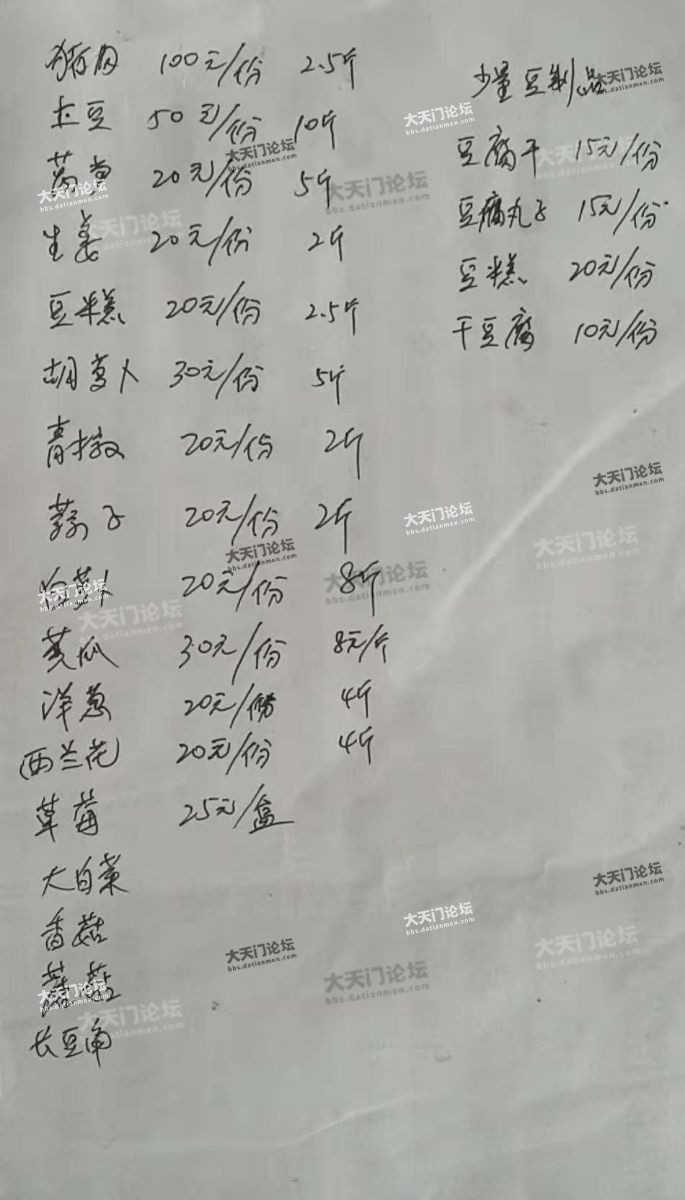 猪肉 100元/份 2.5斤
土豆 50元/份 10斤
莴苣 20元/份 5斤
生姜 20元/份 2斤
豆糕 20元/份 2.5斤
胡萝卜 30元/份 5斤
青椒 20元/份 2斤
20元/份 2斤
白萝卜 20元/份 8斤
黄瓜 30元/份 8元/斤
洋葱 20元/份 4斤
西兰花 20元/份 4斤
草莓 25元/盒
大白菜
香菇
蘑菇
长豆角
少量豆制品
豆腐干 15元/份
豆腐丸子 15元/份
豆糕 20元/份
干豆腐 10元/份
大天门论坛
bbs.datianmen.com